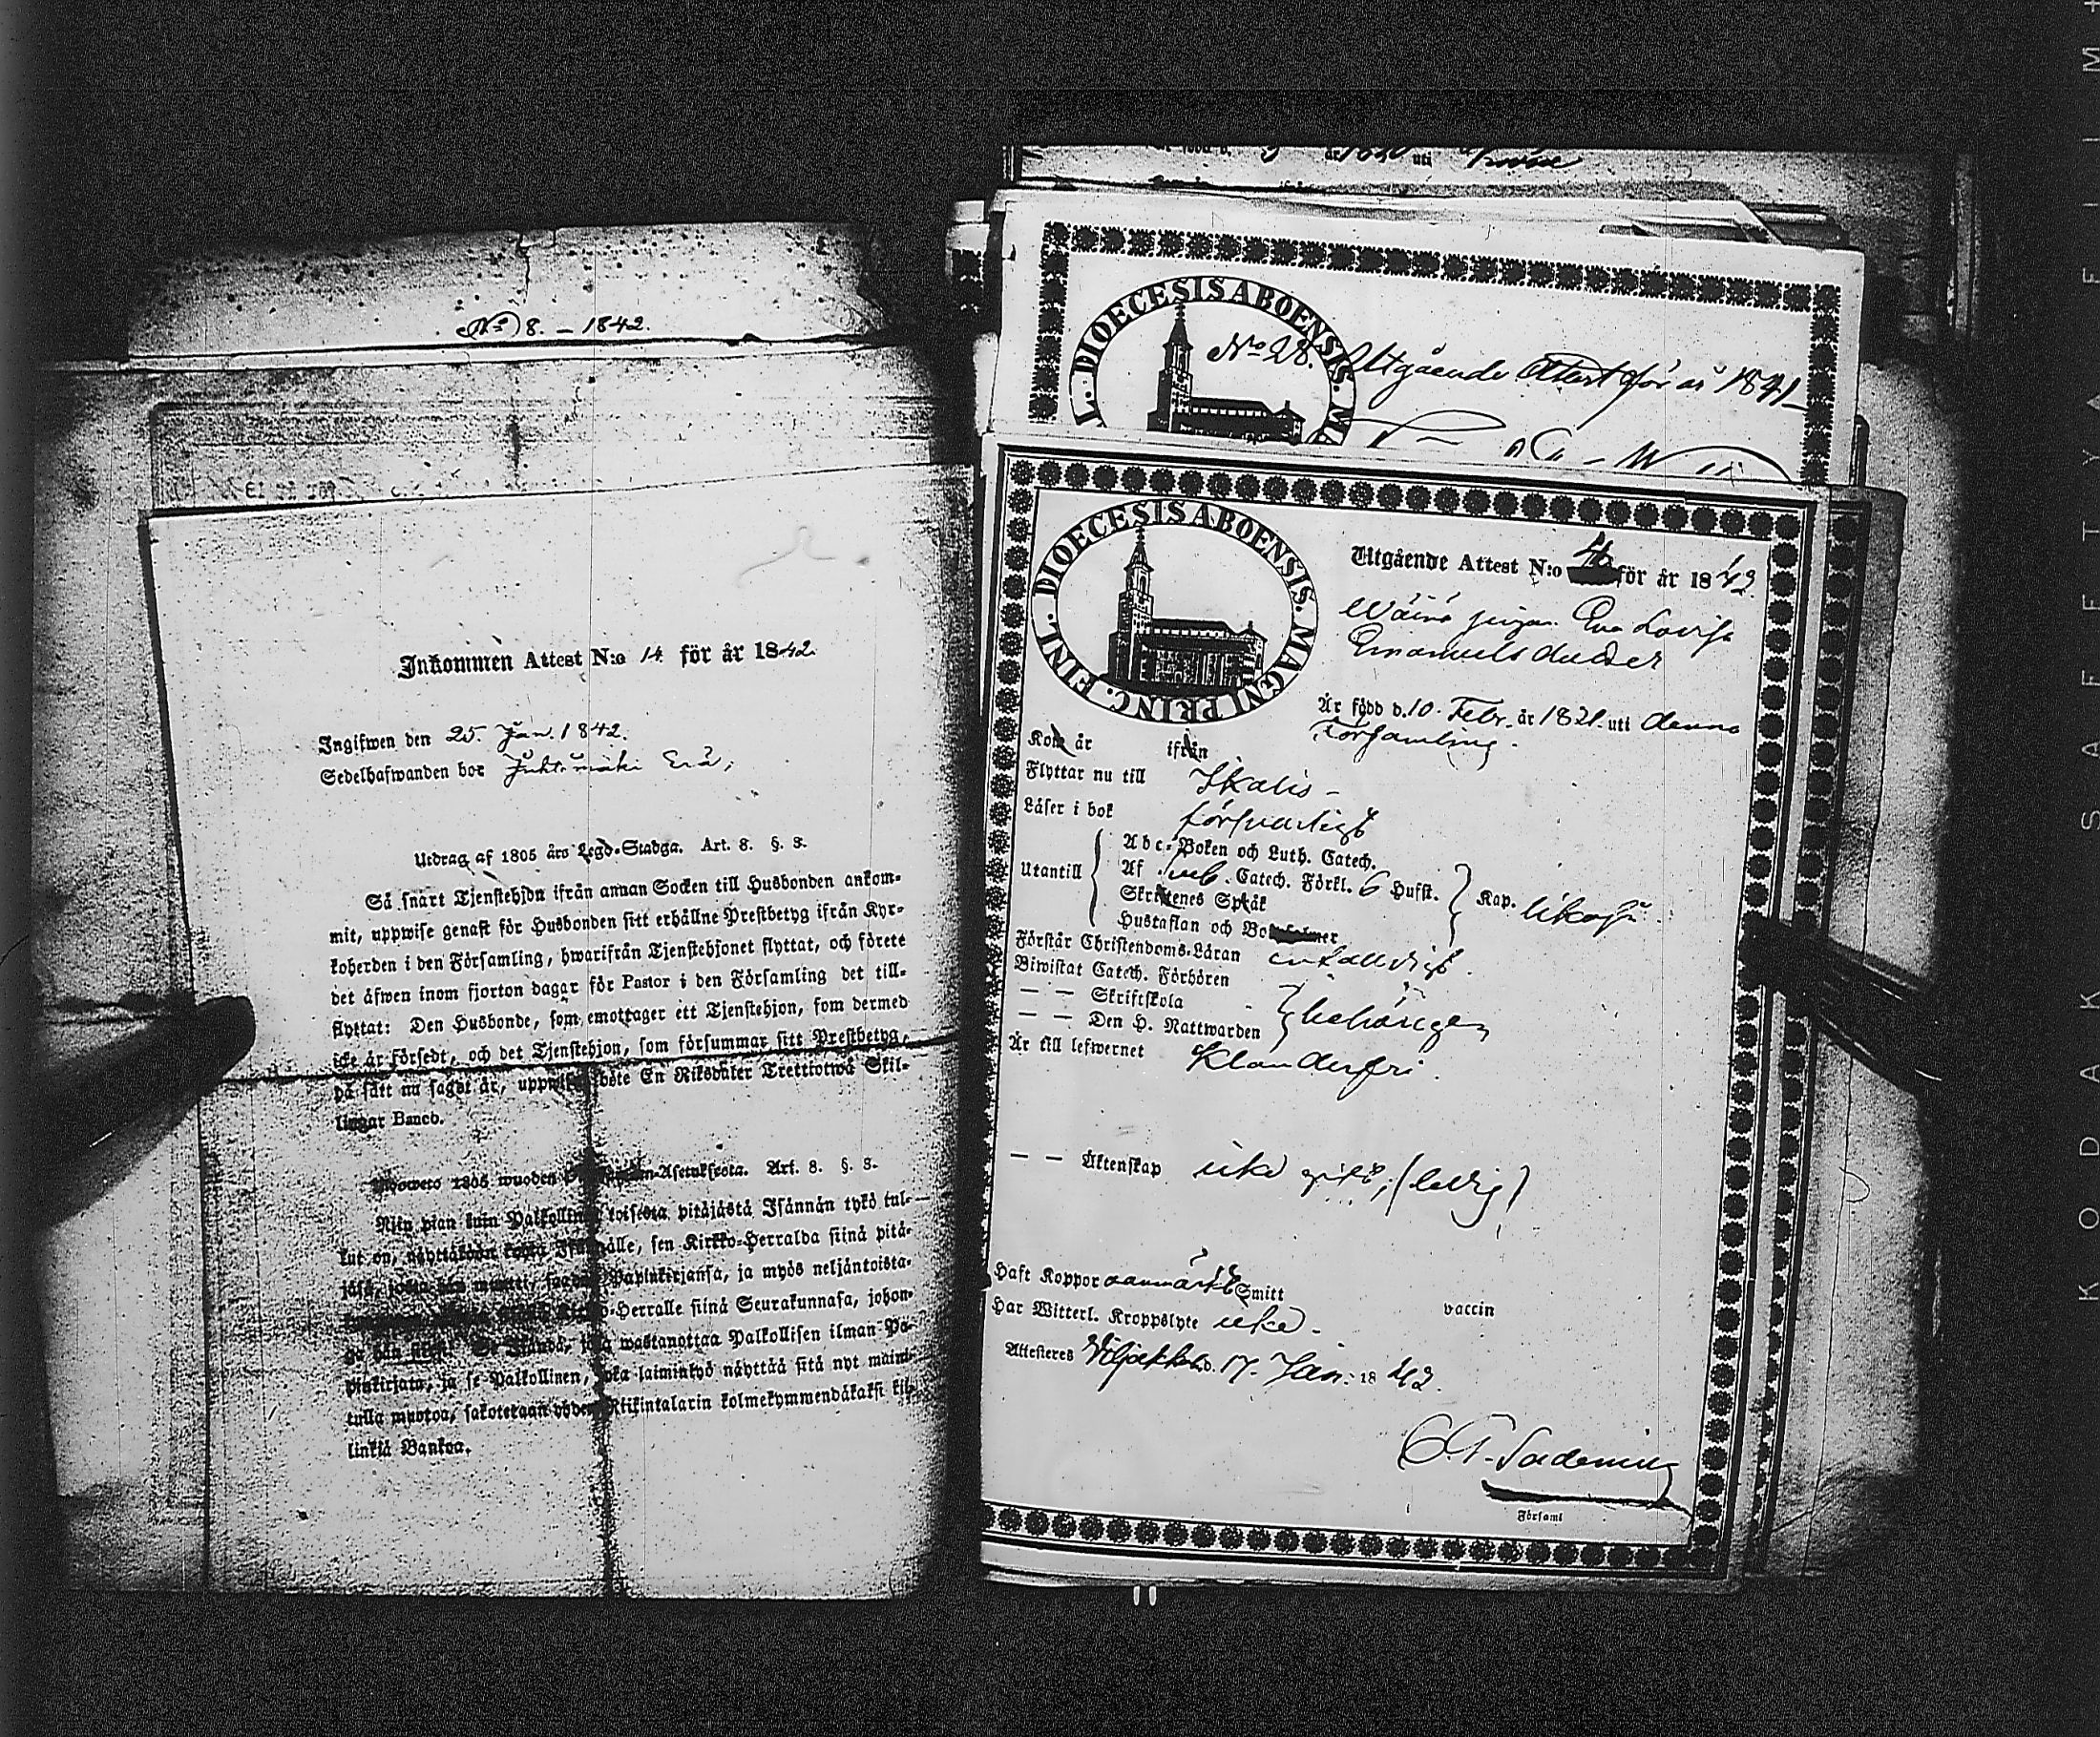 No 8. – 1842.
Inkommen Attest N:o 14 för år 1842.
Ingifwen den 25 Jan. 1842.
Sedelhafwanden bor
Utdrag af 1805 års Legd-Stadga. Art. 8. §. 3.
Så snart Tjenstehjon ifrån annan Socken till Husbonden ankom-
mit, uppwise genast för Husbonden sitt erhållne Prestbetyg ifrån Kyr-
koherden i den Församling, hwarifrån Tjenstehjonet flyttat, och förete
det äfwen inom fjorton dagar för Pastor i den Församling det till-
flyttat: Den Husbonde, som emottager ett Tjenstehjon, som dermed
icke är försedt, och det Tjenstehjon, som försummar sitt Prestbetyg,
på sätt nu sagdt är, uppwisa böte En Riksdaler Trettiotwå Skil-
lingar Banco.
1805 wuoden Asetuksesta. Art. 8. §. 3.
Niin pian kuin Palkollinen toisesta pitäjästä Isännän tykö tul-
lut on, näyttäköön Isännälle, sen Kirkko-Herralda siinä pitä-
jäsä, josta hän muutti, saadun Papinkirjansa, ja myös neljäntoista-
Kirkko-Herralle siinä Seurakunnasa, johon-
ga hän Se Isändä, joka wastanottaa Palkollisen ilman Pa-
pinkirjata, ja se Palkollinen, joka laiminlyö näyttää sitä nyt maini-
tulla muotoa, sakotetaan yhden Riikintalarin kolmekymmendäkaksi kil-
lingiä Bankoa.
DIOECESIS ABOENSIS. MA
No 28. Utgående Attest för år 1841
DIOECESIS ABOENSIS. MAGNI PRINC. FINL.
Utgående Attest N:o 4 för år 1842.
Eva Lovisa
Emanuelsdotter
Är född d. 10. Febr. år 1821 uti denna
Församling.
Kom år ifrån
Flyttar nu till Ikalis –
Läser i bok försvarligt
Utantill
Abc-Boken och Luth. Catech.
Af Sveb. Catech. Förkl. 6 Hufst.
Skriftenes Språk
Kap. likaså
Hustaflan och
Förstår Christendoms-Läran enfaldigt.
Biwistat Catech. Förhören
— — Skriftskola
— — Den H. Nattwarden
behörigen
Är till lefwernet Klanderfri.
— — Äktenskap icke gift; (ledig)
Haft Koppor oanmärkt Smitt vaccin
Har Witterl. Kroppslyte icke –
Attesteres Viljakkala d. 17. Jan. 1842.
Församl
KODAK SAFETY FILM